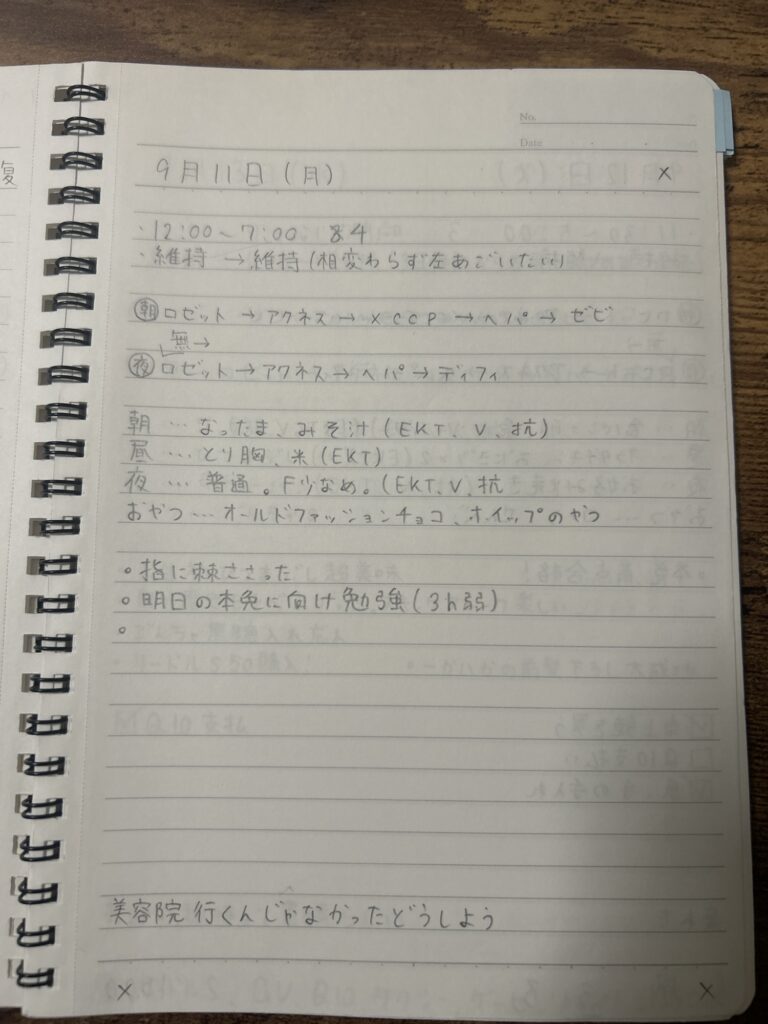 復
No.
Date
9月11日(月) ×
・12:00~7:00 84
・維持 → 維持 (相変わらず左あごいたい)
朝 ロゼット → アクネス → XCCP → ヘパ → ゼビ
無→
夜 ロゼット → アクネス → ヘパ → ディフィ
朝 … なったま、みそ汁 (EKT、V、抗)
昼 … とり胸、米 (EKT)
夜 … 普通。F少なめ。(EKT、V、抗
おやつ … オールドファッションチョコ、ホイップのやつ
○ 指に棘ささった
○ 明日の本免に向け勉強 (3h弱)
○
美容院行くんじゃなかったどうしよう
× ×